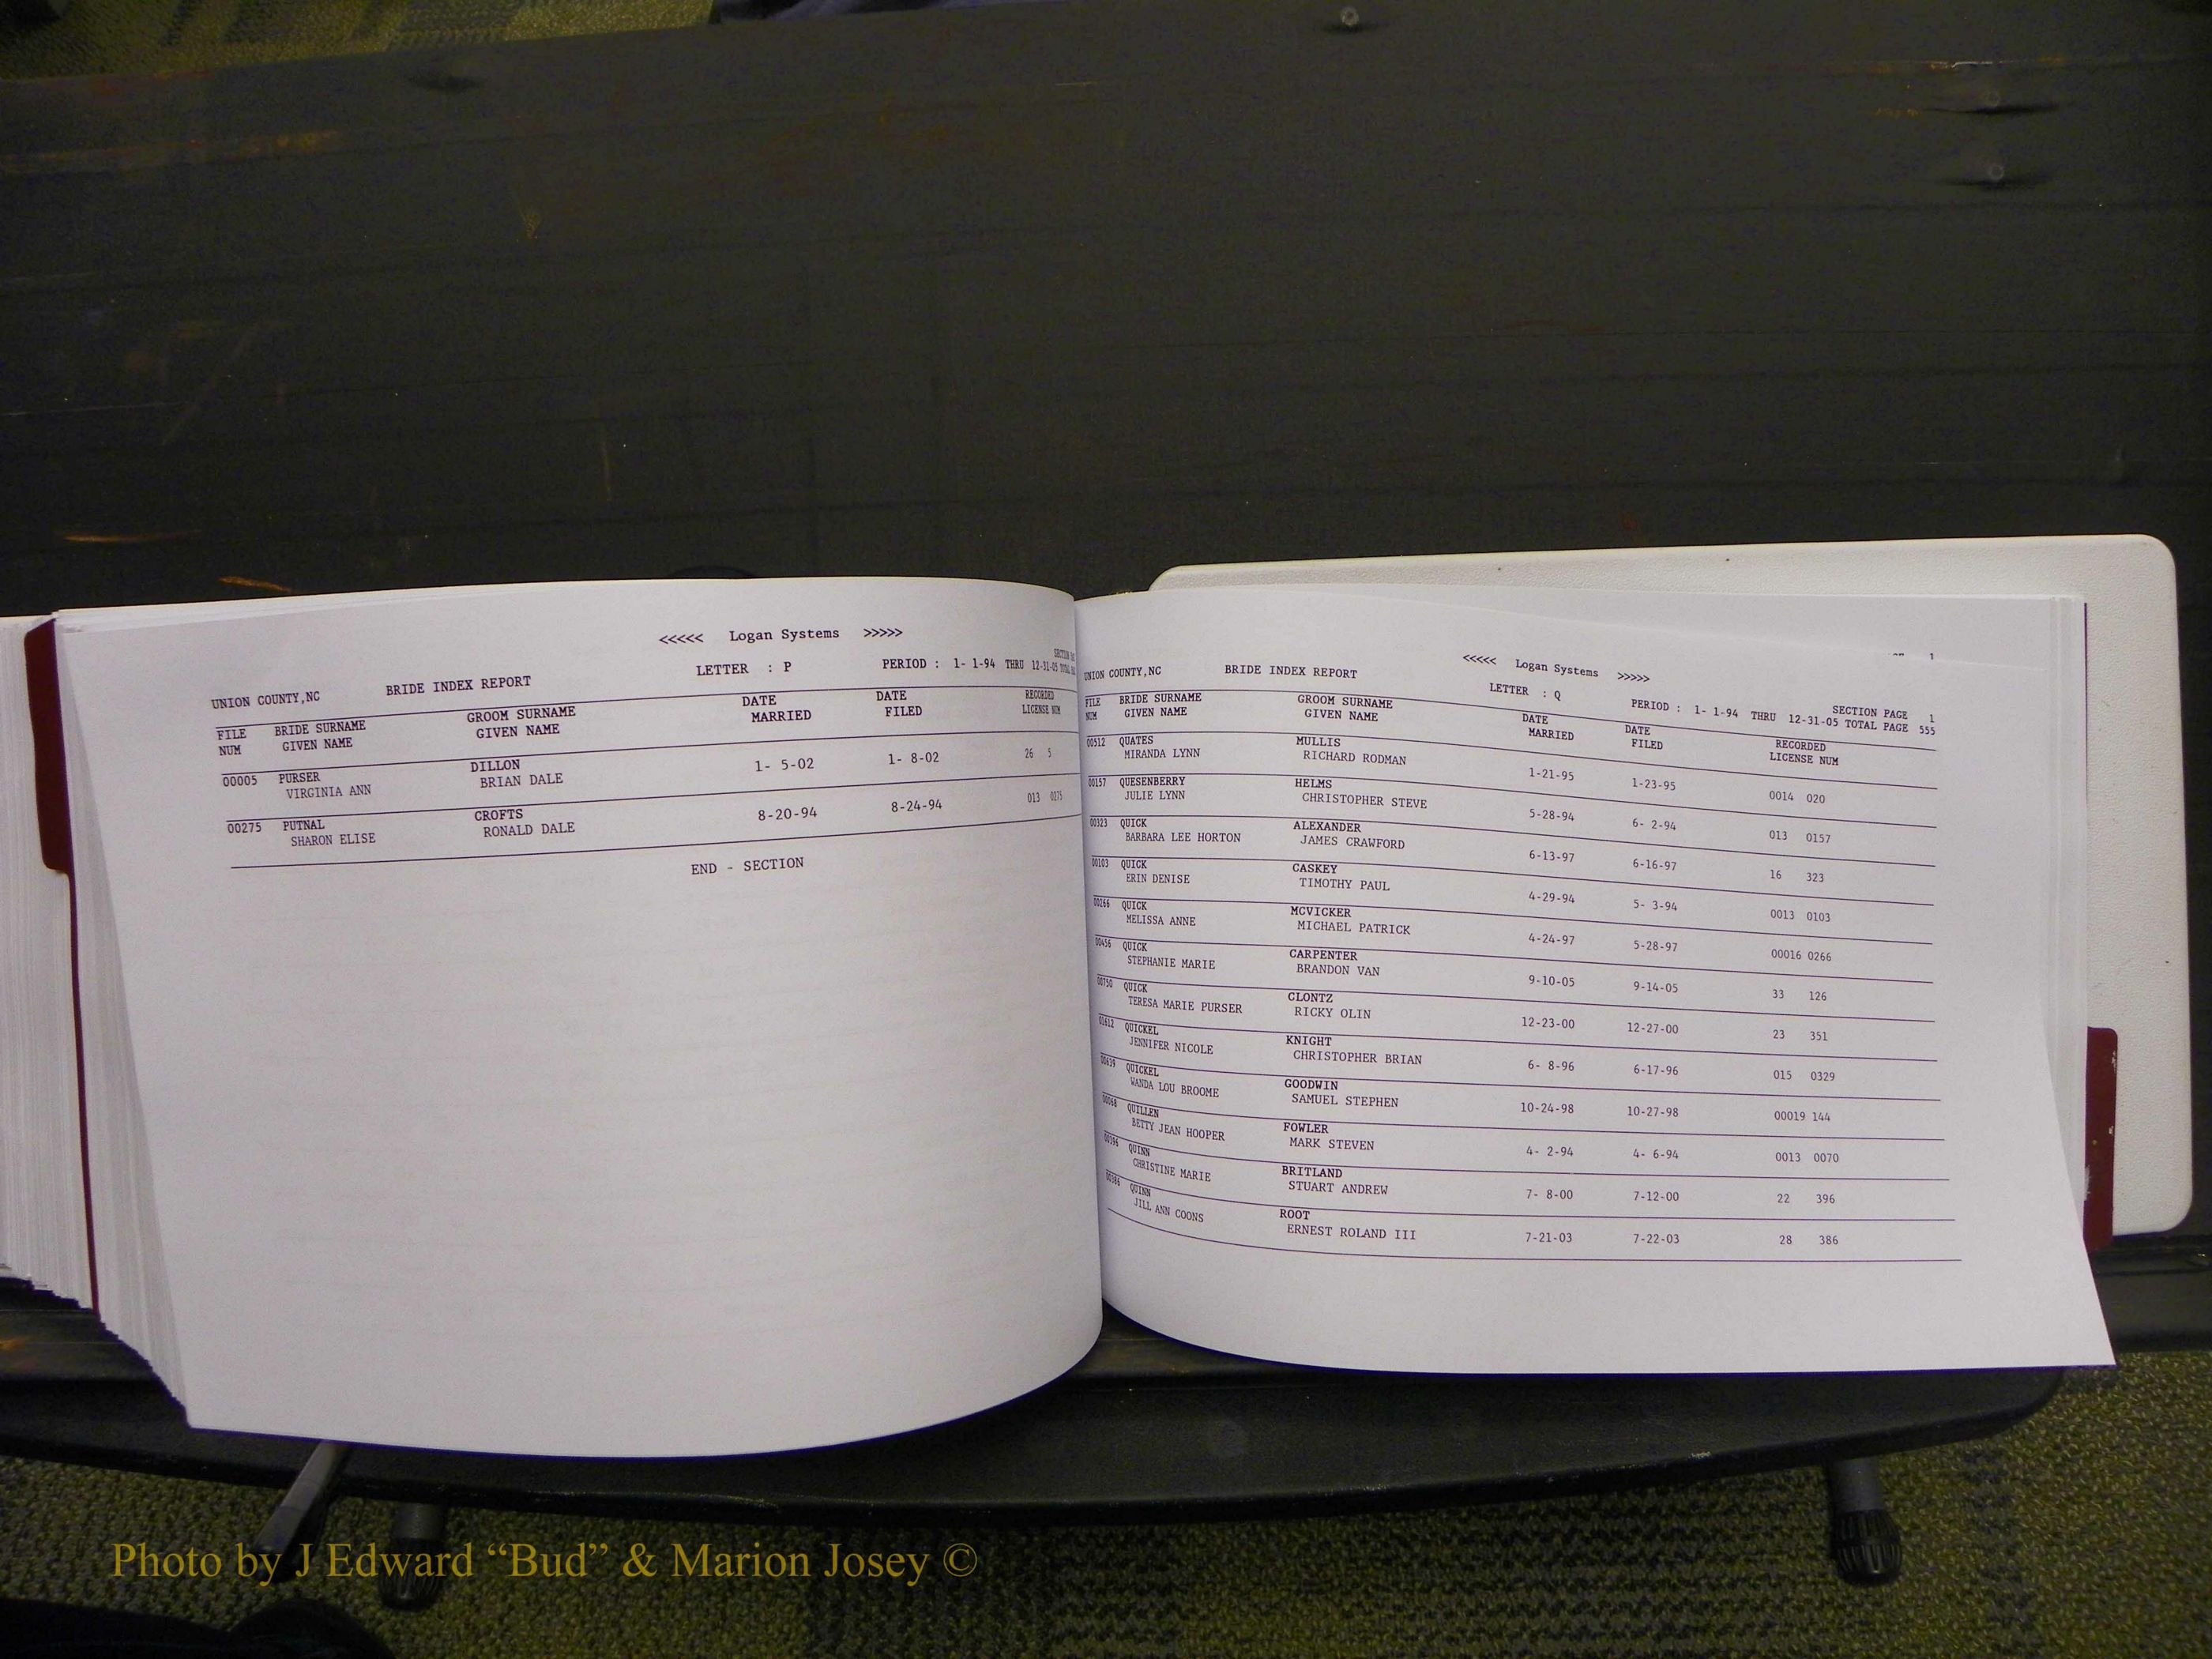 <<<<< Logan Systems >>>>>
UNION COUNTY,NC BRIDE INDEX REPORT LETTER : P PERIOD : 1- 1-94 THRU 12-31-05 TOTAL
FILE BRIDE SURNAME GROOM SURNAME DATE DATE RECORDED
NUM GIVEN NAME GIVEN NAME MARRIED FILED LICENSE NUM
00005 PURSER DILLON 1- 5-02 1- 8-02 26 5
VIRGINIA ANN BRIAN DALE
00275 PUTNAL CROFTS 8-20-94 8-24-94 013 0275
SHARON ELISE RONALD DALE
END - SECTION
1
<<<<< Logan Systems >>>>>
SECTION PAGE 1
UNION COUNTY,NC BRIDE INDEX REPORT LETTER : Q PERIOD : 1- 1-94 THRU 12-31-05 TOTAL PAGE 555
FILE BRIDE SURNAME GROOM SURNAME DATE DATE RECORDED
NUM GIVEN NAME GIVEN NAME MARRIED FILED LICENSE NUM
00512 QUATES MULLIS 1-21-95 1-23-95 0014 020
MIRANDA LYNN RICHARD RODMAN
00157 QUESENBERRY HELMS 5-28-94 6- 2-94 013 0157
JULIE LYNN CHRISTOPHER STEVE
00323 QUICK ALEXANDER 6-13-97 6-16-97 16 323
BARBARA LEE HORTON JAMES CRAWFORD
00103 QUICK CASKEY 4-29-94 5- 3-94 0013 0103
ERIN DENISE TIMOTHY PAUL
00266 QUICK MCVICKER 4-24-97 5-28-97 00016 0266
MELISSA ANNE MICHAEL PATRICK
00456 QUICK CARPENTER 9-10-05 9-14-05 33 126
STEPHANIE MARIE BRANDON VAN
00750 QUICK CLONTZ 12-23-00 12-27-00 23 351
TERESA MARIE PURSER RICKY OLIN
01612 QUICKEL KNIGHT 6- 8-96 6-17-96 015 0329
JENNIFER NICOLE CHRISTOPHER BRIAN
00639 QUICKEL GOODWIN 10-24-98 10-27-98 00019 144
WANDA LOU BROOME SAMUEL STEPHEN
00068 QUILLEN FOWLER 4- 2-94 4- 6-94 0013 0070
BETTY JEAN HOOPER MARK STEVEN
00396 QUINN BRITLAND 7- 8-00 7-12-00 22 396
CHRISTINE MARIE STUART ANDREW
00386 QUINN ROOT 7-21-03 7-22-03 28 386
JILL ANN COONS ERNEST ROLAND III
Photo by J Edward “Bud” & Marion Josey ©